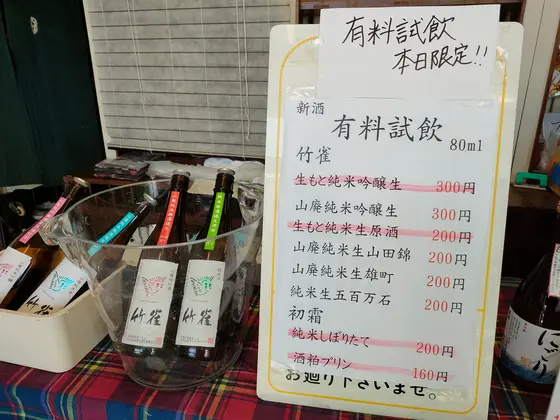 有料試飲
本日限定!!
新酒
有料試飲
80ml
竹雀
生もと純米吟醸生 300円
山廃純米吟醸生 300円
生もと純米生原酒 200円
山廃純米生山田錦 200円
山廃純米生雄町 200円
純米生五百万石 200円
初霜
純米しぼりたて 200円
酒粕プリン 160円
お廻り下さいませ。
竹雀
竹雀
竹雀
にごり